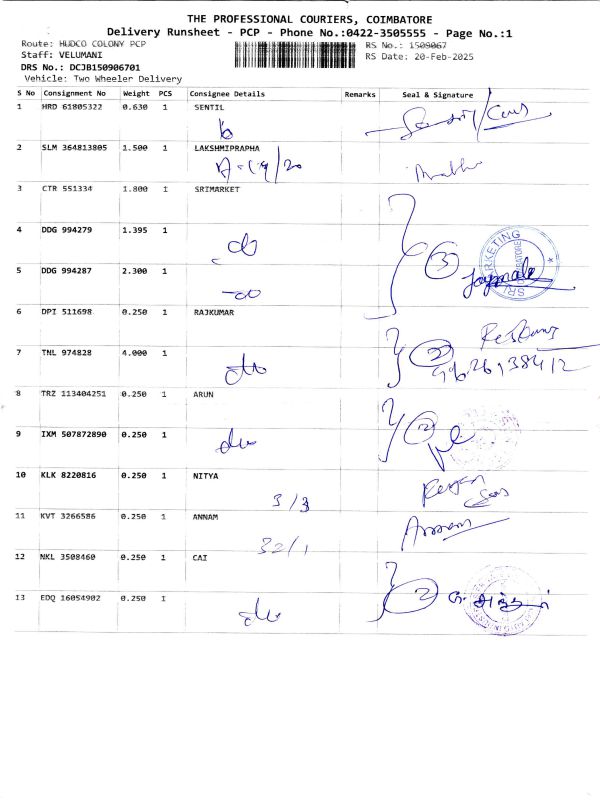 THE PROFESSIONAL COURIERS, COIMBATORE
Delivery Runsheet - PCP - Phone No.:0422-3505555 - Page No.:1
Route: HUDCO COLONY PCP
RS No.: 1509067
Staff: VELUMANI
RS Date: 20-Feb-2025
DRS No.: DCJB150906701
Vehicle: Two Wheeler Delivery
S No Consignment No Weight PCS Consignee Details Remarks Seal & Signature
1 HRD 61805322 0.630 1 SENTIL
2 SLM 364813805 1.500 1 LAKSHMIPRAPHA
3 CTR 551334 1.800 1 SRIMARKET
4 DDG 994279 1.395 1
do 3
5 DDG 994287 2.300 1
do
6 DPI 511698 0.250 1 RAJKUMAR
7 TNL 974828 4.000 1 2
do
8 TRZ 113404251 0.250 1 ARUN
9 IXM 507872890 0.250 1 2
do
10 KLK 8220816 0.250 1 NITYA
3/3
11 KVT 3266586 0.250 1 ANNAM Annam
32/1
12 NKL 3508460 0.250 1 CAI
13 EDQ 16054902 0.250 1 2
do